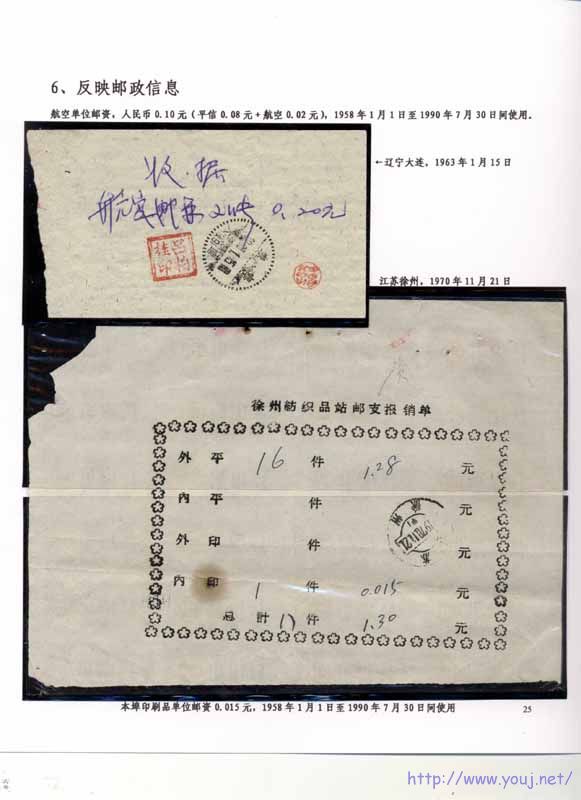 6、反映邮政信息
航空单位邮资，人民币0.10元（平信0.08元+航空0.02元），1958年1月1日至1990年7月30日间使用．
←辽宁大连，1963年1月15日
收据
航空邮票2枚 0.20元
江苏徐州，1970年11月21日
徐州纺织品站邮支报销单
外平 16 件 1.28 元
内平 件 元
外印 件 元
内印 1 件 0.015 元
总计 17 件 1.30 元
本埠印刷品单位邮资0.015元，1958年1月1日至1990年7月30日间使用
25
http://www.youj.net/